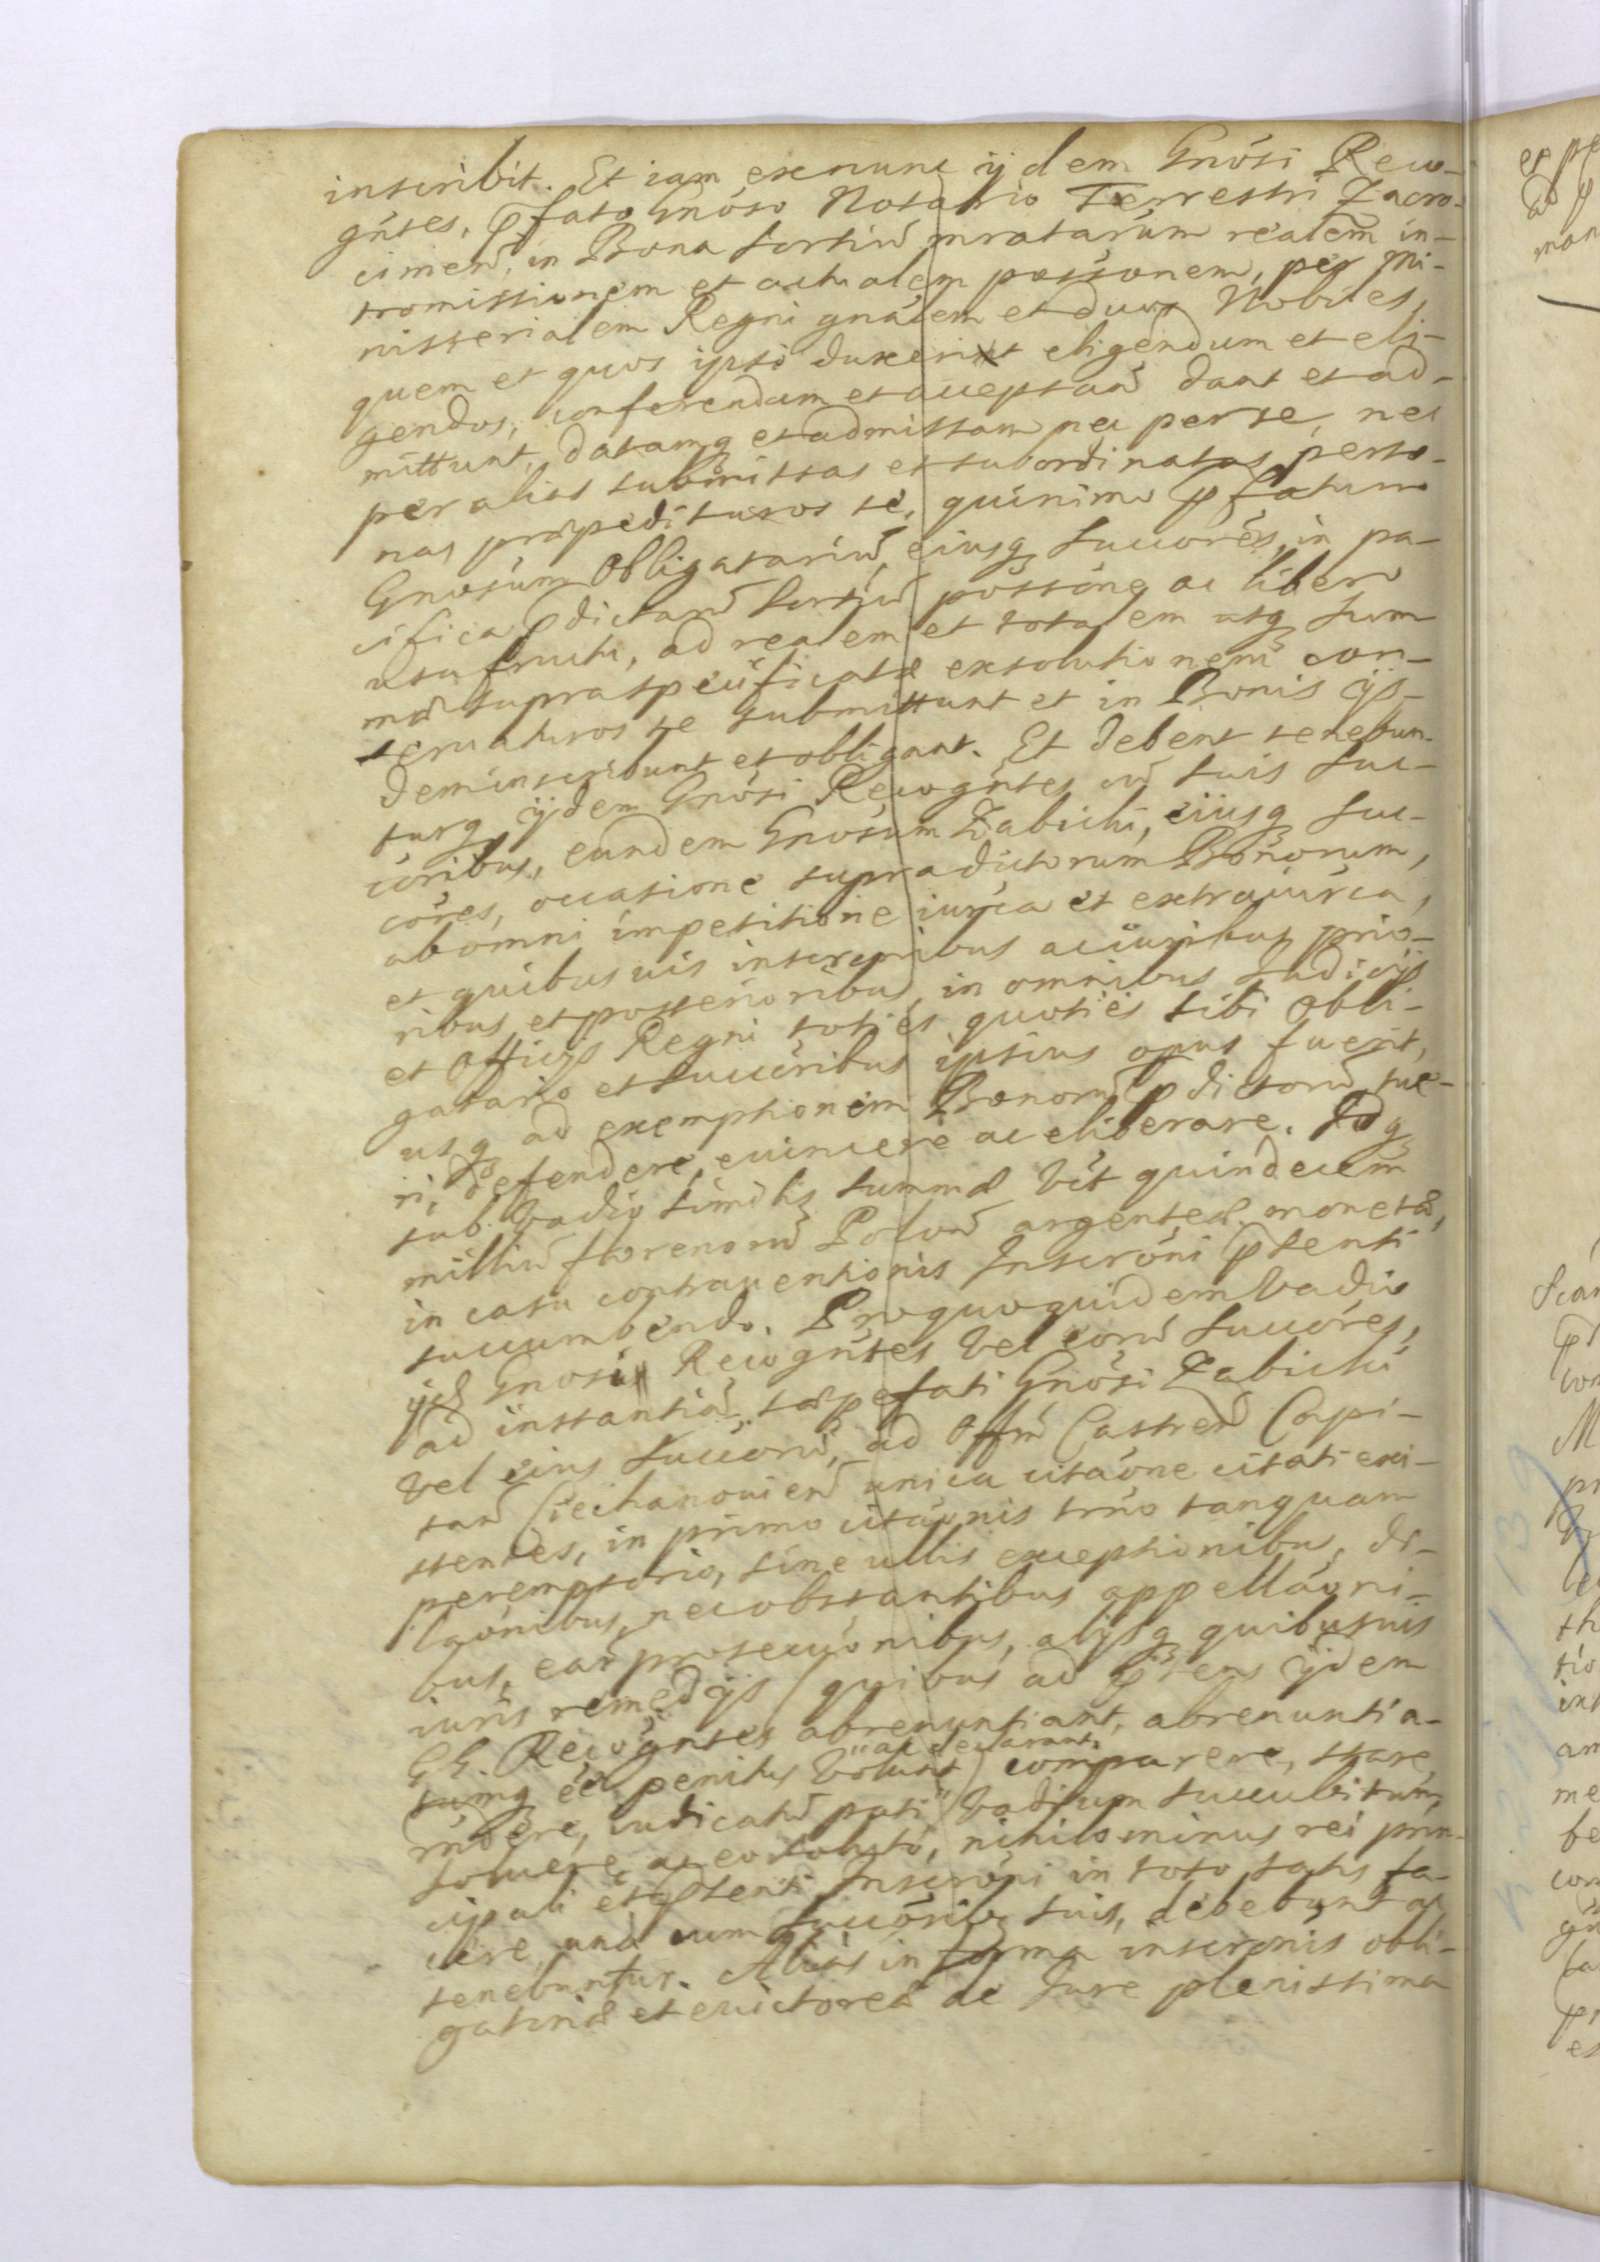 inscribit. Et iam exnunc ijdem Gnósi Reco-
gńtes, p̃fato Gnóso Notario Terrestri Zacro-
cimeñ, in Bona Sortiũ mratarum realem in-
tromissionem et actualem possonem, per Mi-
nisterialem Regni gnálem et duos Nobiles,
quem et quos ipsi duxerint eligendum et eli-
gendos, conferendam et acceptañ dant et ad-
mittunt, datamq et admissam nec per se, nec
per alias submissas et subordinatas perso-
nas præpedituros se, quinimo p̃fatum
Gnosum Obligatariũ, eiusq Succóres, in pa-
cifica p̃dictarũ Sortiũ possóne ac libero
usufructu, ad realem et totalem usq sum
mæ supraspecificatæ exsolutionem con-
seruaturos se submittunt et in Bonis ijs-
dem inscribunt et obligant. Et debent tenebun-
turq ijdem Gnósi Recogńtes cũ suis suc-
córibus, eundem Gnosum Zabicki, eiusq suc-
córes, occasione supradictorum Bonorum,
ab omni impetitione iurca et extraiurca,
et quibusuis inscronibus ac iuribus prio-
ribus et posterioribus, in omnibus Iudicijs
et Officijs Regni toties quoties sibi Obli-
gatario et Succóribus ipsius opus fuerit,
usq ad exemptionem Bonorũ p̃dictorũ tue-
ri, defendere, euincere ac eliberare. Idq
sub vadio similis summæ vćt quindecem
milliũ florenorũ Poloñ argenteæ monetæ,
in casu contrauentionis Inscróni p̃senti
succumbendo. Pro quoquidem Vadio
ijd Gnosi Recogńtes vel eorũ Succóres,
ad instantiã sæpefati Gnósi Zabicki
vel eius Succorũ, ad Offm̃ Castreñ Capi-
tañ Ciechanouieñ unica citaóne citati exi-
stentes, in primo citaónis trńo tanquam
peremptorio, sine ullis exceptionibus, di-
laónibus, nec obstantibus appellaóni-
bus, earũ prosecuónibus, alijsq quibusuis
iuris remedijs (quibus ad p̃sens ijdem
GG. Recogńtes abrenuntiant, abrenuntia-
tumq eé penitus volunt "ac declarant") comparere, stare,
rńdere, iudicatũ pati" Vadium succubitum
soluere, ac eo soluto, nihilominus rei prin-
cipali et p̃senti Inscróni in toto satis fa-
cere, una cum Succórib suis, debebunt ac
tenebuntur. Aliàs in forma inscronis obli-
gatoriæ et euictoreæ de Iure plenissima